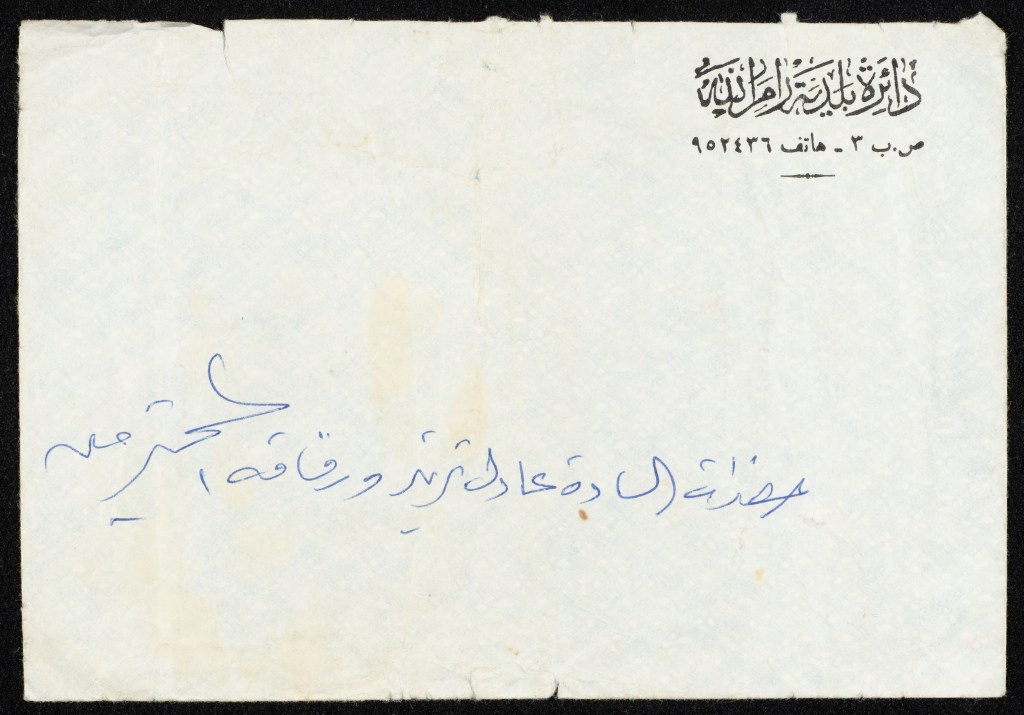 دائرة بلدية رام الله
ص.ب ٣ - هاتف ٩٥٢٤٣٦
حضرات السادة عادل ترزي ورفاقه المحترمين